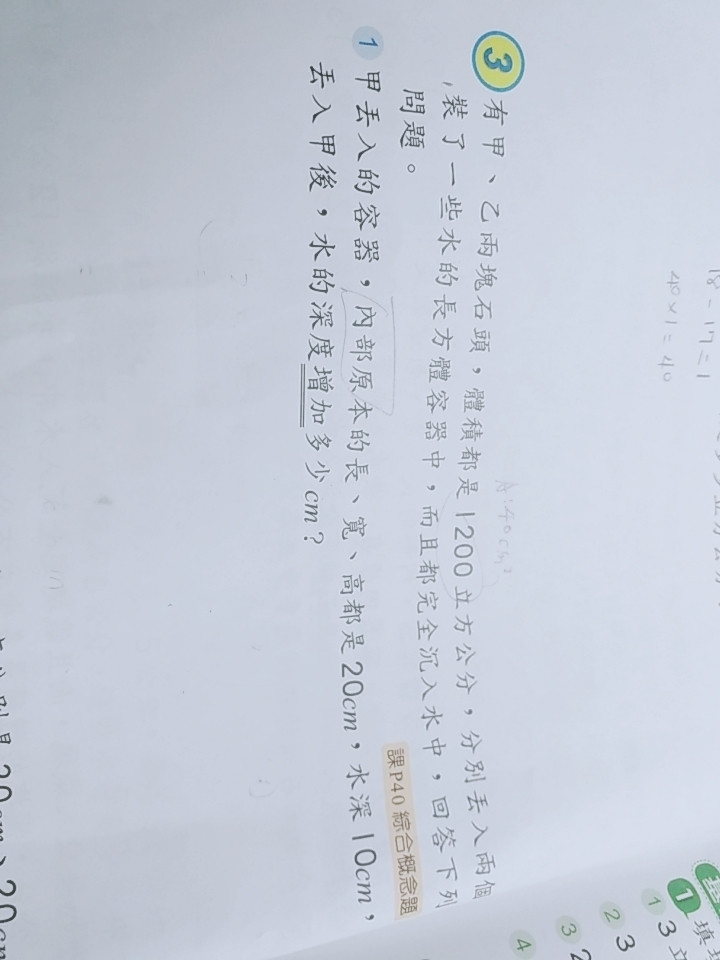 18-17=1
40×1=40
A:40cm³
3 有甲、乙兩塊石頭,體積都是1200立方公分,分別丟入兩個
裝了一些水的長方體容器中,而且都完全沉入水中,回答下列
問題。
課P40 綜合概念題
1 甲丟入的容器,內部原本的長、寬、高都是20cm,水深10cm,
丟入甲後,水的深度增加多少cm?
1 填
1 3立
2 3
3 2
4